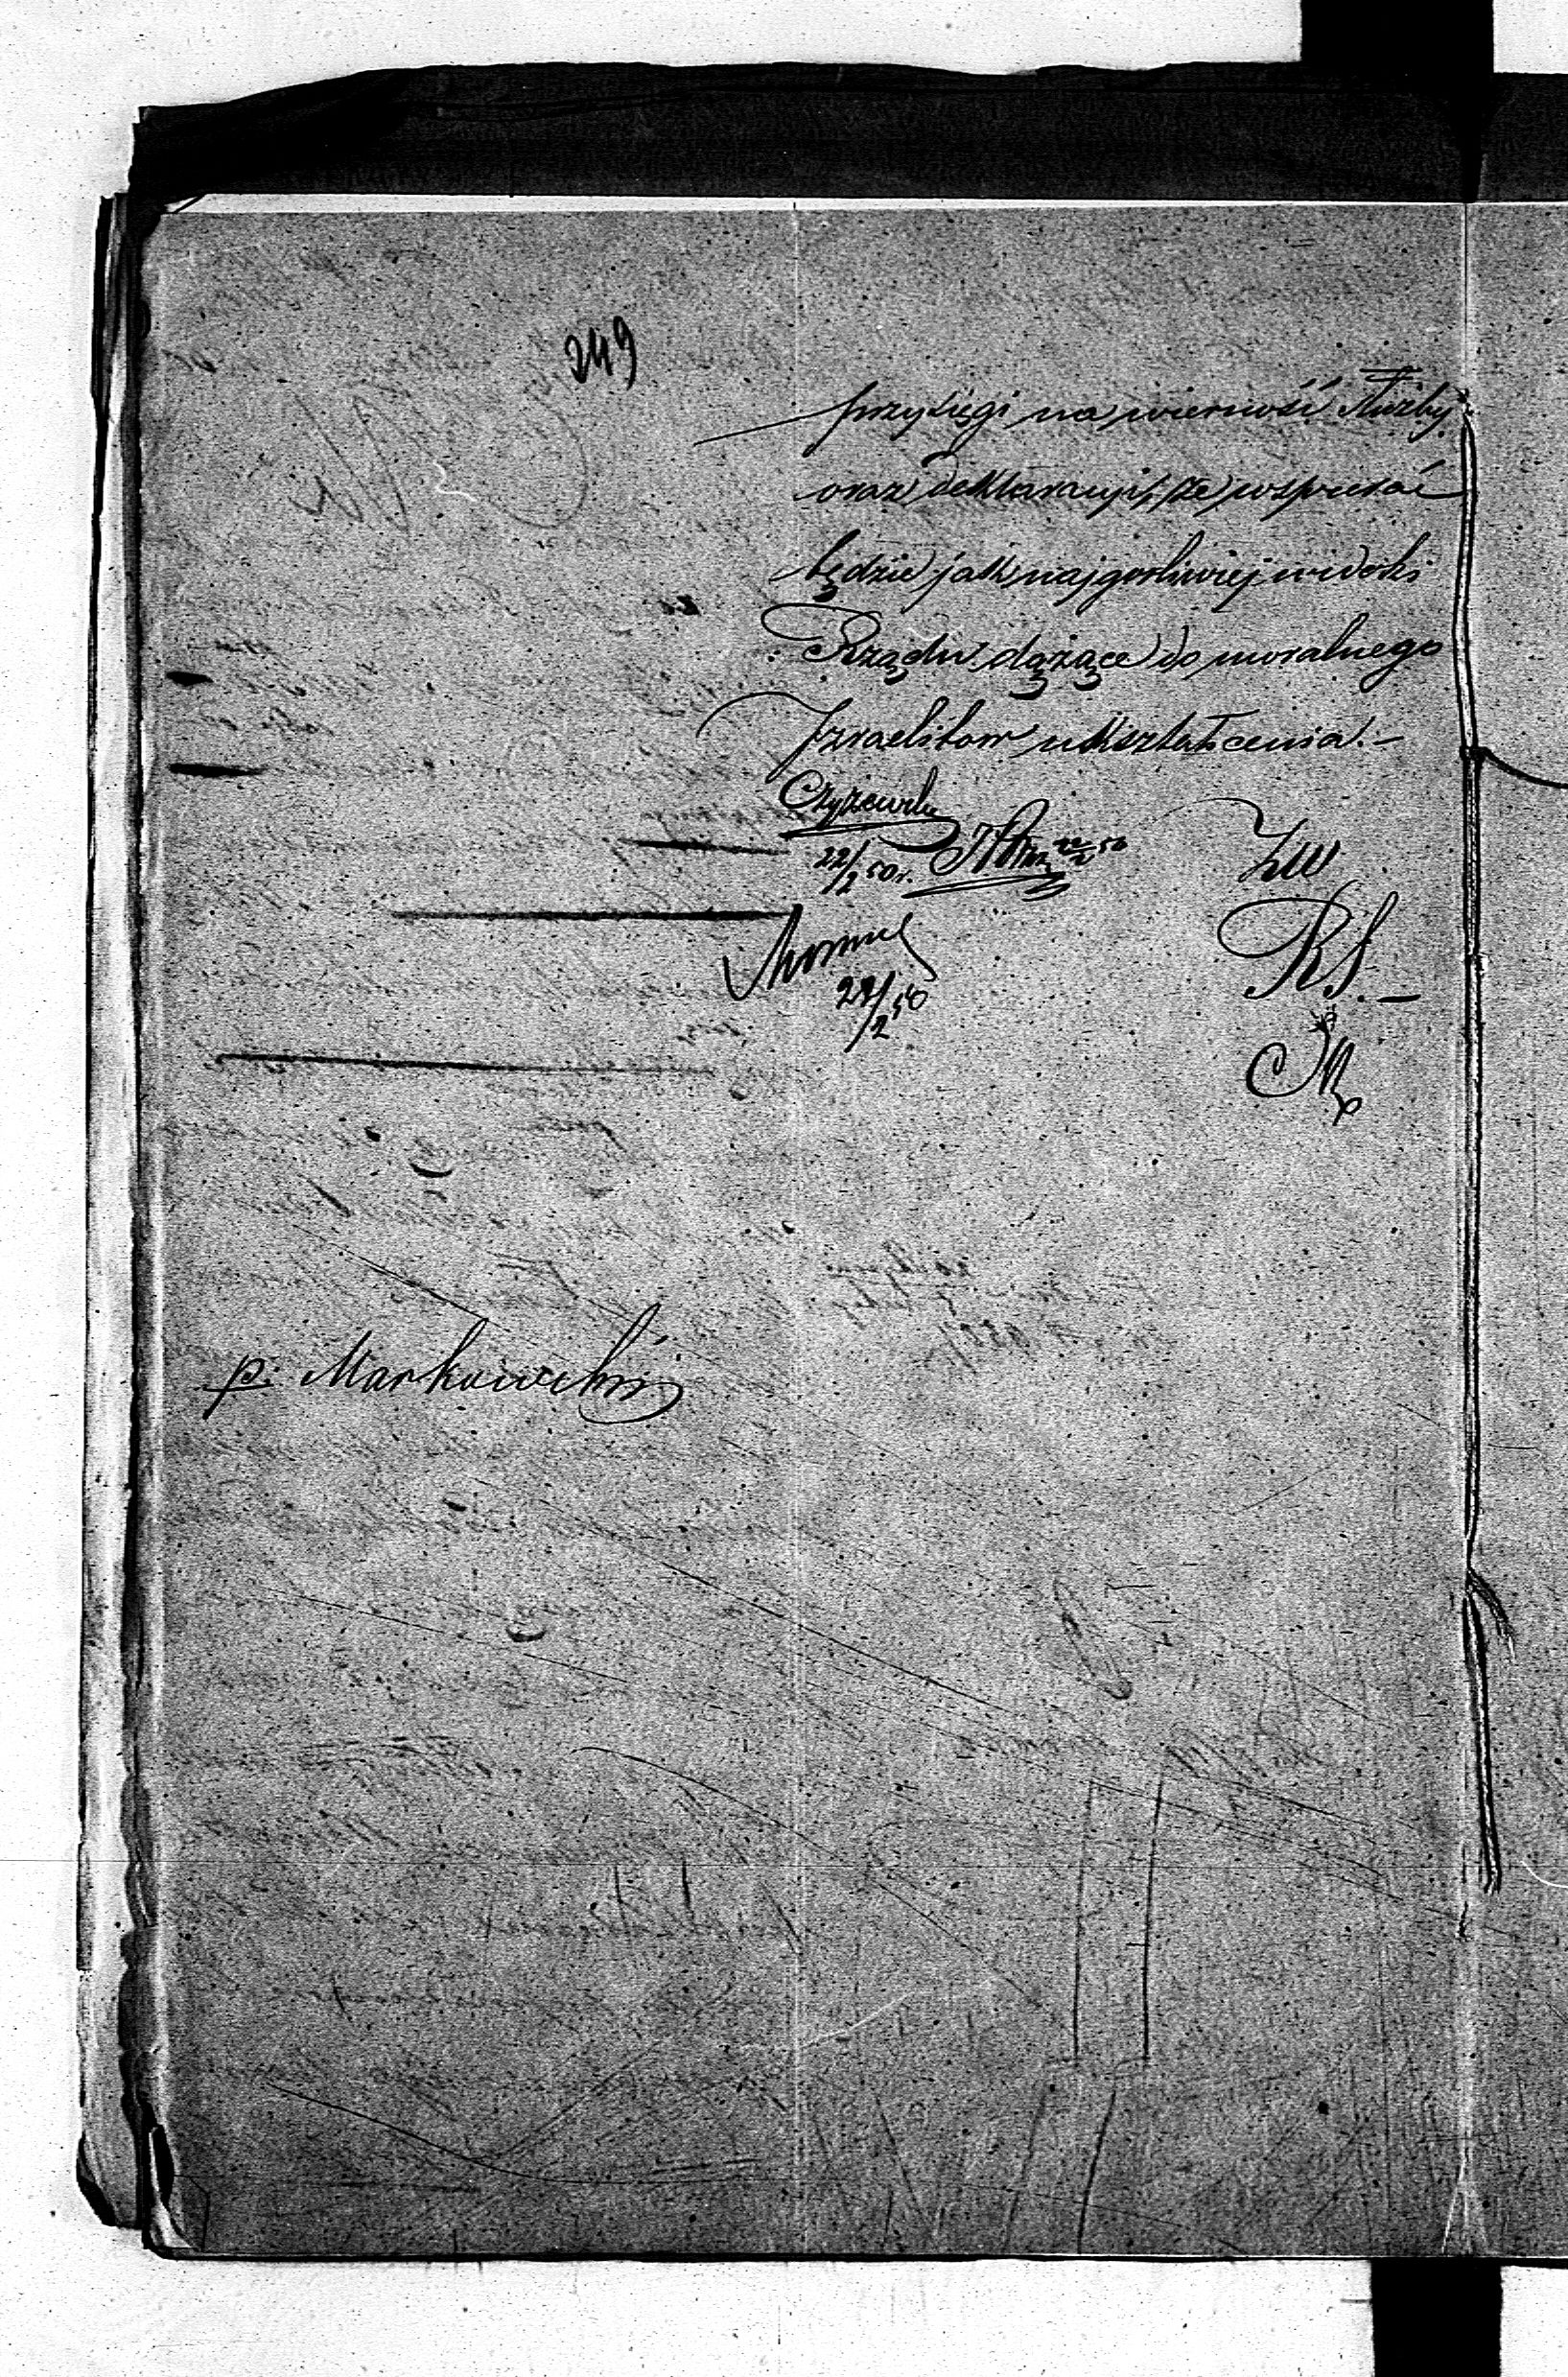 249
przysięgi na wierność służby
oraz deklaracyi, że wspierać
będzie jak najgorliwiej widoki
Rządu dążące do moralnego
Izraelitow ukształcenia.-
Czyżewski
22/2 50 r.
22/2 50
ZW
RS.-
22/2 50
p. Markowski